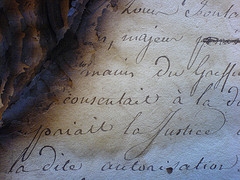 , majeur
main du Greffier
consentait à la d
priait la Justice
la dite autorisation